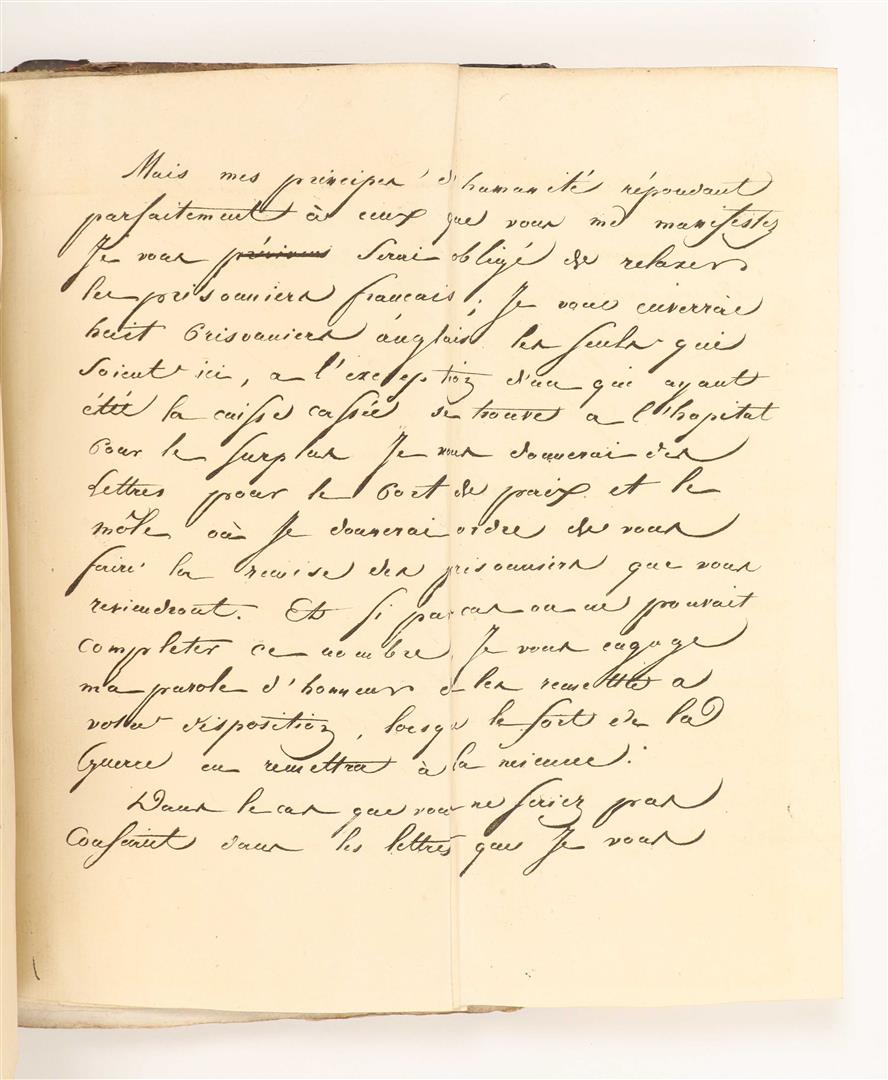 Mais mes principes d'humanité répondant
parfaitement à ceux que vous me manifestez
Je vous prévirens serai obligé de relaxer
les prisonniers francais; Je vous enverrai
huit Prisonniers anglais les seuls qui
soient ici, a l'exception d'un qui ayant
été la caisse cassée se trouve a l'hopital
pour le surplus Je vous donnerai des
Lettres pour le Port de paix et le
môle où Je donnerai ordre de vous
faire la remise des prisonniers que vous
reviendront. Et Si par cas on ne pouvait
completer ce nombre Je vous engage
ma parole d'honneur de les remettre a
votre disposition, lorsque le sort de la
Guerre en remettra à la mienne.
Dans le cas que vous ne seriez pas
Confiant dans les lettres que Je vous